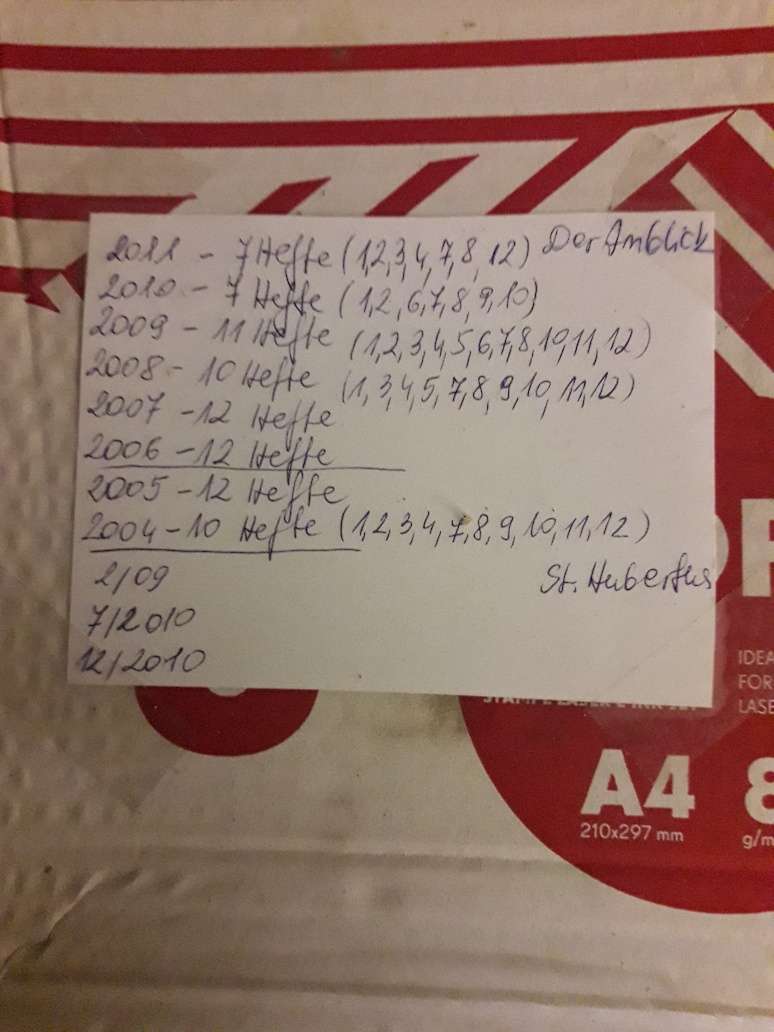 2011 - 7 Hefte (1,2,3,4,7,8,12) Der Anblick
2010 - 7 Hefte (1,2,6,7,8,9,10)
2009 - 11 Hefte (1,2,3,4,5,6,7,8,10,11,12)
2008 - 10 Hefte (1,3,4,5,7,8,9,10,11,12)
2007 - 12 Hefte
2006 - 12 Hefte
2005 - 12 Hefte
2004 - 10 Hefte (1,2,3,4,7,8,9,10,11,12)
2/09 St. Hubertus
7/2010
12/2010
IDEA
FOR
LASE
A4 8
210x297 mm g/m